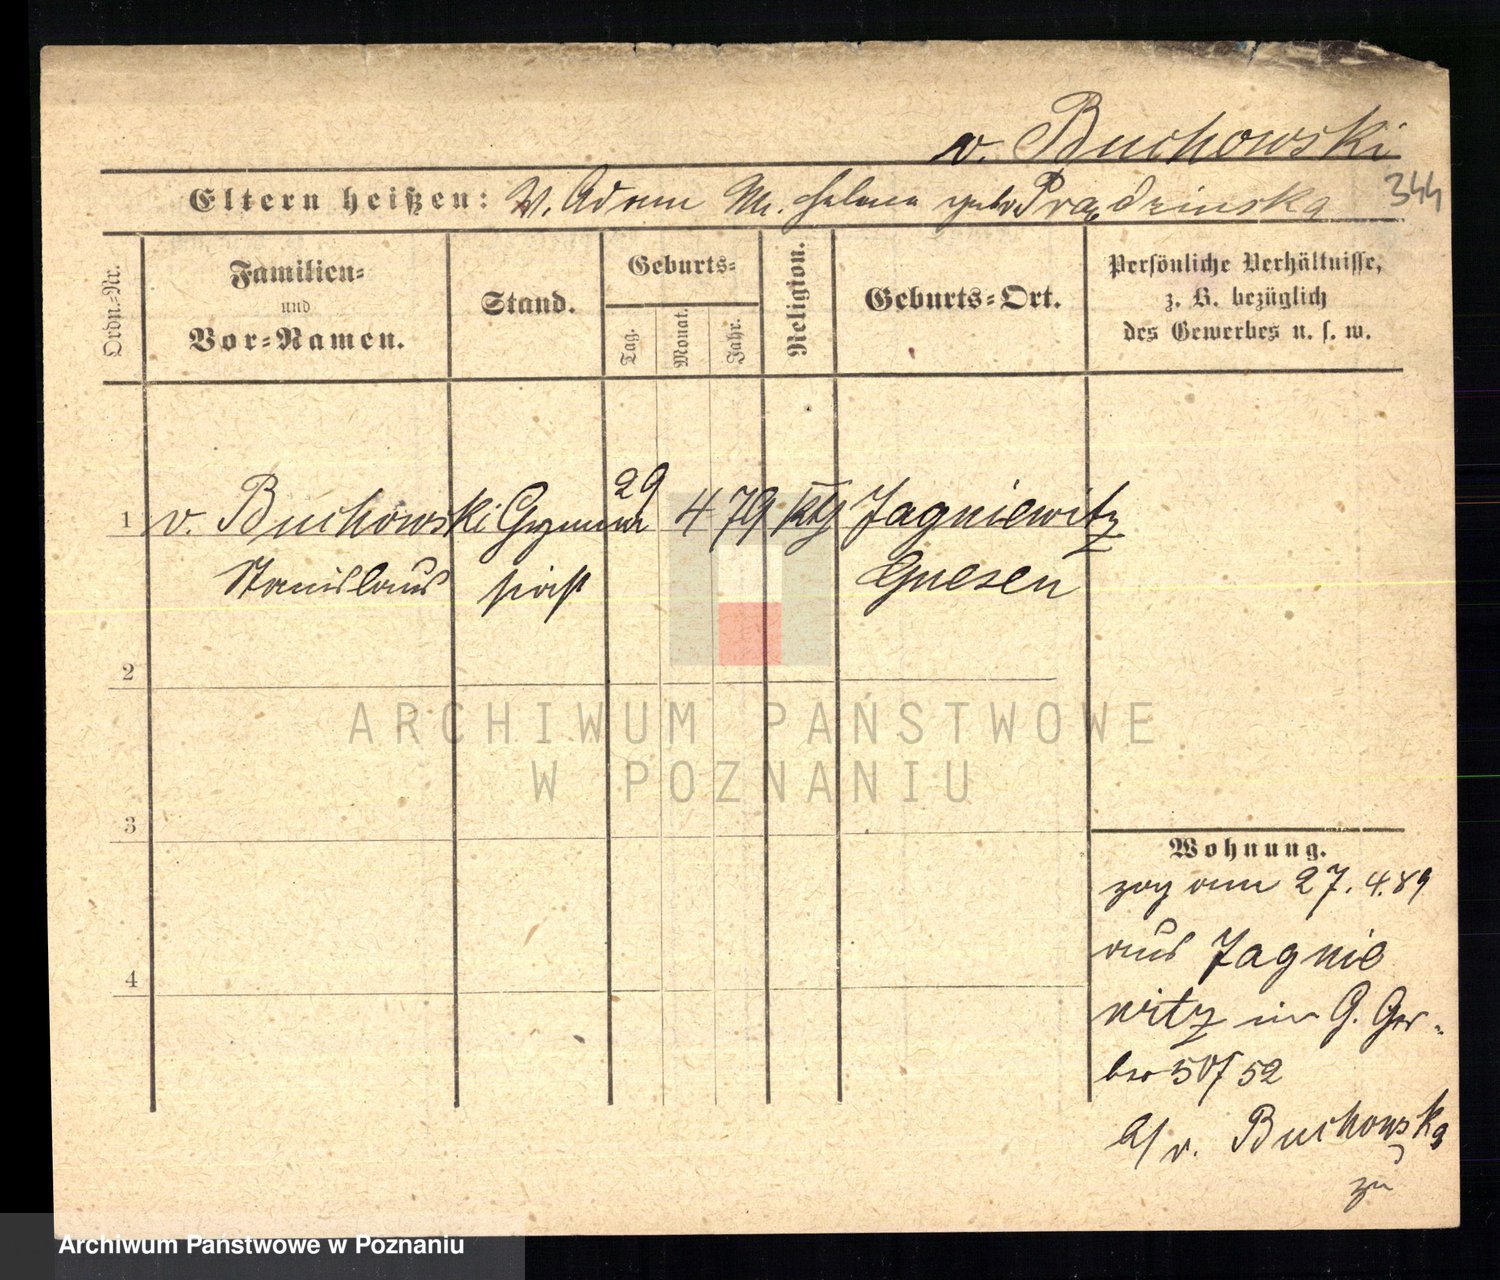 v. Buchowski
344
Eltern heißen: V. Adam M. Helena geb. Prądzinska
Ordn.-Nr.
Familien-
und
Vor-Namen.
Stand.
Geburts-
Tag.
Monat.
Jahr.
Religion.
Geburts-Ort.
Persönliche Verhältnisse,
z. B. bezüglich
des Gewerbes u. s. w.
1 v. Buchowski Gymna 29 4 79 kth Jagniewitz
Stanislaus siast Gnesen
2
3
4
Wohnung.
zog am 27.4.89
aus Jagnie
witz in G. Ger-
ber 50/52
b/ v. Buchowska
zu
ARCHIWUM PAŃSTWOWE
W POZNANIU
Archiwum Państwowe w Poznaniu